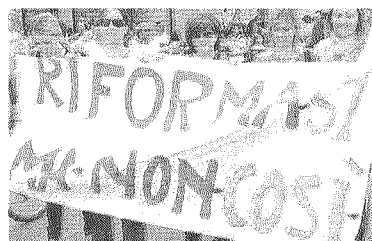 RIFORMA SI
MA NON COSI